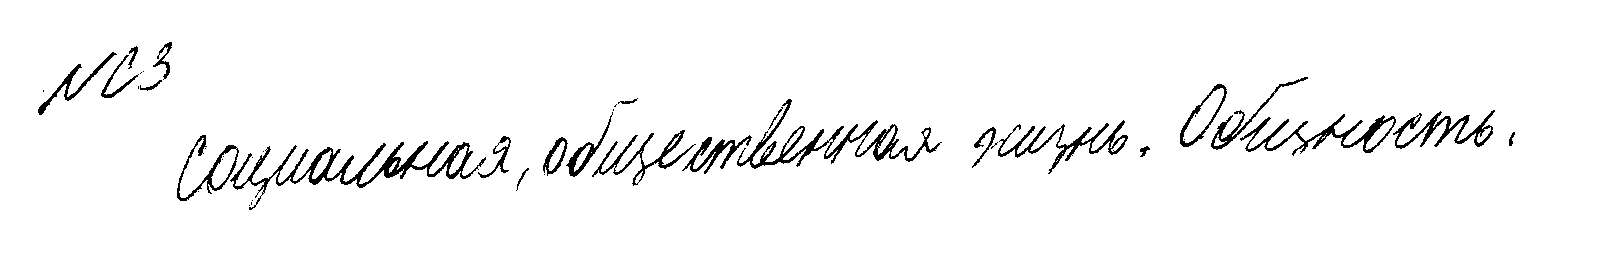 №С3
Социальная, общественная жизнь. Общность.